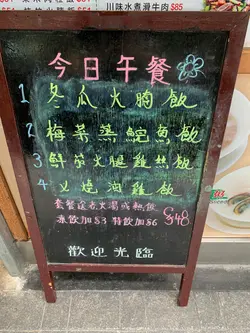 川味水煮滑牛肉$85
今日午餐
1 冬瓜火腩飯
2 梅菜蒸鯇魚飯
3 鮮茄火腿雞絲飯
4 叉燒油雞飯
套餐送老火湯或熱飲 $48
凍飲加$3 特飲加$6
歡迎光臨